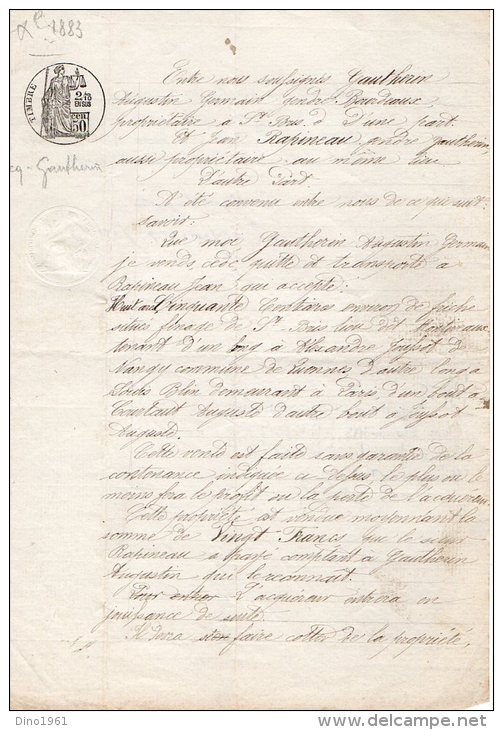 1883
TIMBRE
2/10 EN SUS
50 cent
acq - Gautherin
Entre nous soussignés Gautherin
Augustin Germain gendre Bordeaux,
propriétaire à St Bris d'une part.
Et Jean Rapineau gendre Gautherin,
aussi propriétaire au même lieu
D'autre Part
A été convenu entre nous de ce que suit
Savoir:
Que moi, Gautherin Augustin Germain
je vends, cède, quitte et transporte à
Rapineau Jean qui accepte:
Huit ares Cinquante Centiares environ de friche
situés finage de St Bris lieu dit
tenant d'un long à Alexandre
commune de d'autre long à
Louis Blin demeurant à Paris d'un bout à
Courtaut Auguste d'autre bout à
Auguste.
Cette vente est faite sans garantie de la
contenance indiquée ci dessus le plus ou le
moins fera le profit ou la perte de l'acquéreur
Cette propriété est vendue moyennant la
somme de Vingt Francs que le sieur
Rapineau a payé comptant à Gautherin
Augustin qui le reconnait.
L'acquéreur entrera en
jouissance de suite.
Il devra faire cotter de la propriété,
Dino1961
www.delcampe.net